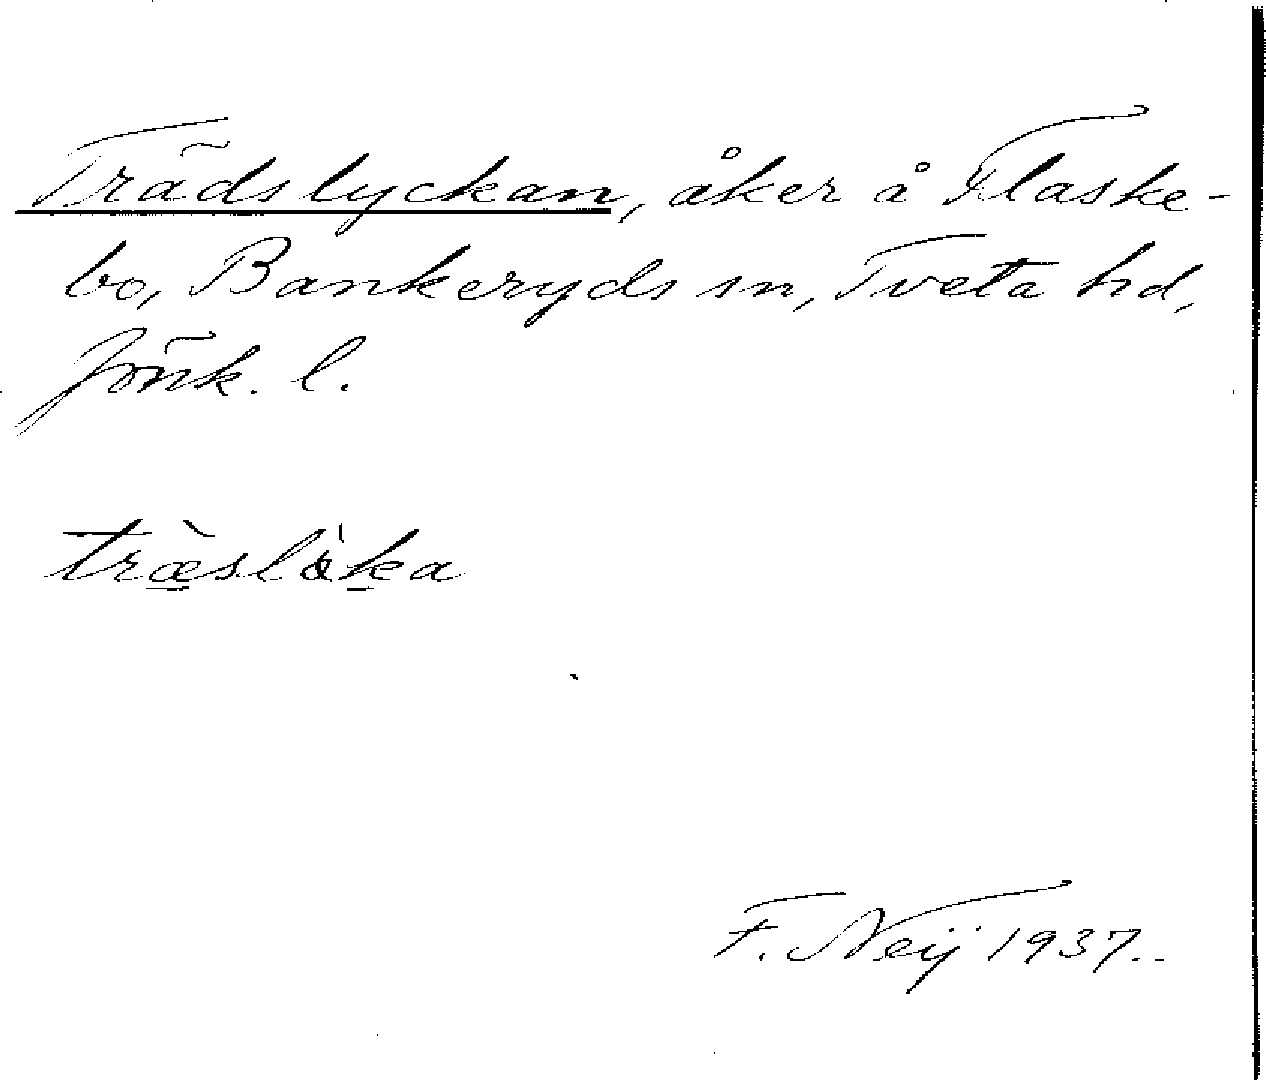 Trädslyckan, åker å Flaske-
bo, Bankeryds sn, Tveta hd,
Jönk. l.
træ̀slöka
F. Neij 1937.